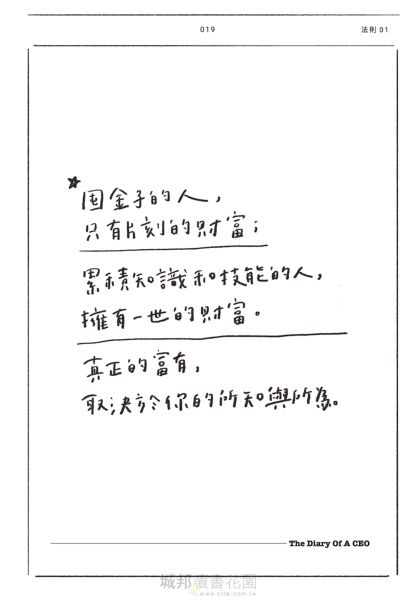 019
法則 01
囤金子的人，
只有片刻的財富；
累積知識和技能的人，
擁有一世的財富。
真正的富有，
取決於你的所知與所為。
The Diary Of A CEO
城邦讀書花園
www.cite.com.tw